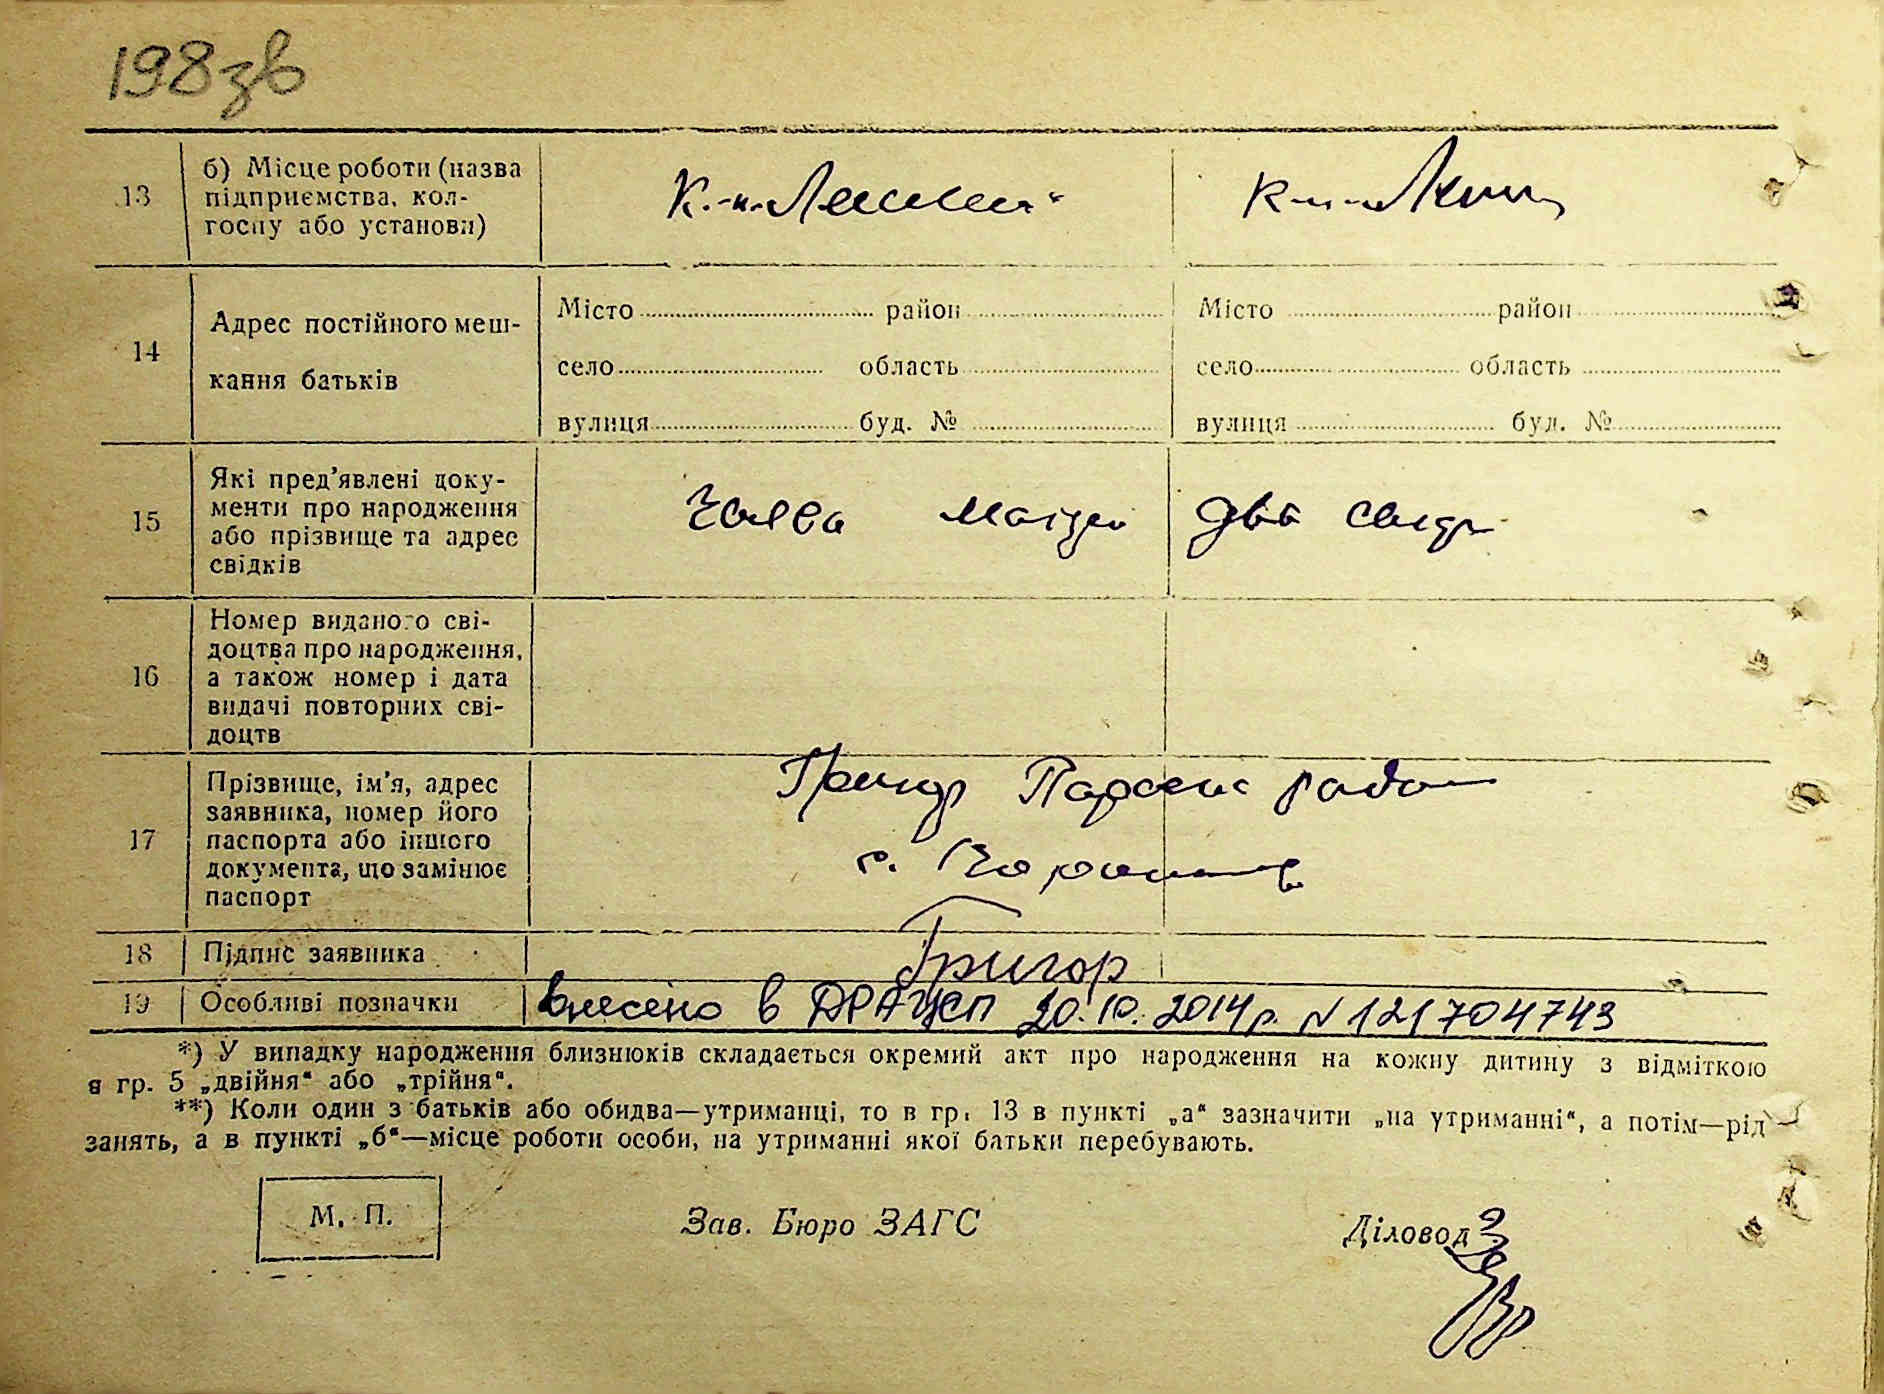 198зв
13
б) Місце роботи (назва
підприємства, кол-
госпу або установи)
14
Адрес постійного меш-
кання батьків
Місто район
село область
вулиця буд. №
Місто район
село область
вулиця буд. №
15
Які пред'явлені доку-
менти про народження
або прізвище та адрес
свідків
два
16
Номер виданого сві-
доцтва про народження,
а також номер і дата
видачі повторних сві-
доцтв
17
Прізвище, ім'я, адрес
заявника, номер його
паспорта або іншого
документа, що замінює
паспорт
с.
18
Підпис заявника
Григор
19
Особливі позначки
внесено в ДРАЦСП 20.10.2014р. N 121704743
*) У випадку народження близнюків складається окремий акт про народження на кожну дитину з відміткою
в гр. 5 „двійня“ або „трійня“.
**) Коли один з батьків або обидва—утриманці, то в гр. 13 в пункті „а“ зазначити „на утриманні“, а потім—рід
занять, а в пункті „б“—місце роботи особи, на утриманні якої батьки перебувають.
М. П.
Зав. Бюро ЗАГС
Діловод